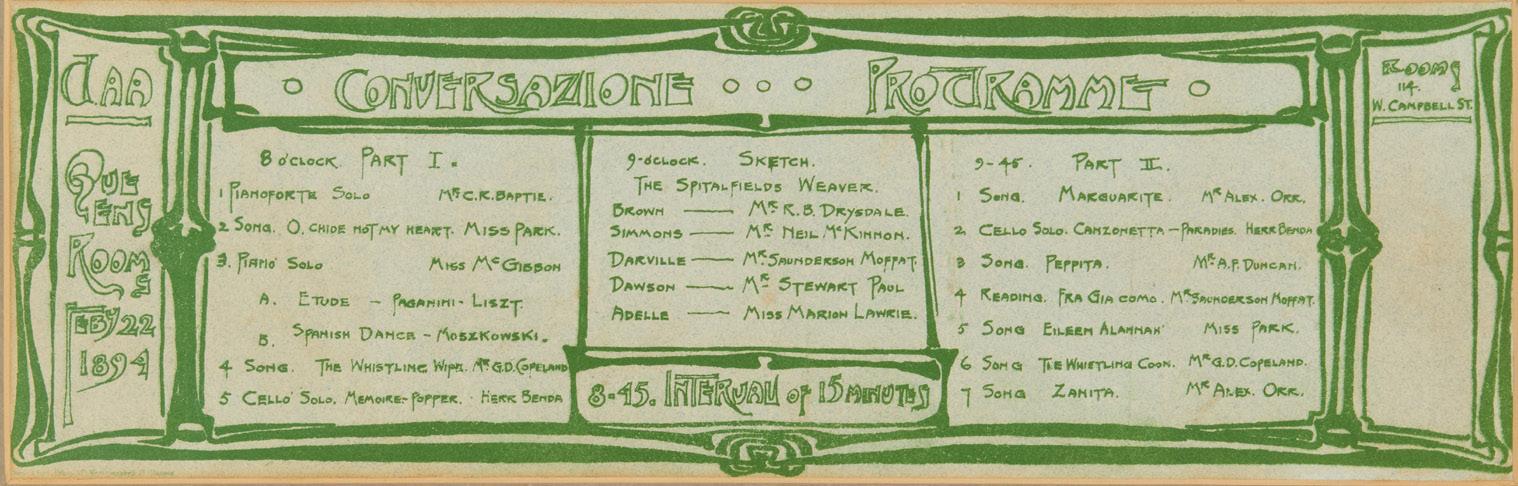 G.A.A
QUEENS
ROOMS
FEBY 22
1894
CONVERSAZIONE PROGRAMME
8 O'CLOCK. PART I.
1 PIANOFORTE SOLO MR C.R. BAPTIE.
2 SONG. O, CHIDE NOT MY HEART. MISS PARK.
3. PIANO SOLO MISS MCGIBBON
A. ETUDE – PAGANINI-LISZT.
B. SPANISH DANCE – MOSZKOWSKI.
4 SONG. THE WHISTLING WIFE. MR G.D. COPELAND
5 CELLO SOLO. MEMOIRE-POPPER. HERR BENDA
9-OCLOCK. SKETCH.
THE SPITALFIELDS WEAVER.
BROWN — MR R.B. DRYSDALE.
SIMMONS — MR NEIL MCKINNON.
DARVILLE — MR SAUNDERSON MOFFAT.
DAWSON — MR STEWART PAUL
ADELLE — MISS MARION LAWRIE.
8-45. INTERVAL OF 15 MINUTES
9-45. PART II.
1 SONG. MARGUARITE. MR ALEX. ORR.
2 CELLO SOLO. CANZONETTA – PARADIES. HERR BENDA
3 SONG. PEPPITA. MR A.F. DUNCAN.
4 READING. FRA GIACOMO. MR SAUNDERSON MOFFAT.
5 SONG EILEEN ALANNAH MISS PARK.
6 SONG THE WHISTLING COON. MR G.D. COPELAND.
7 SONG ZANITA. MR ALEX. ORR.
ROOMS
114.
W. CAMPBELL ST.